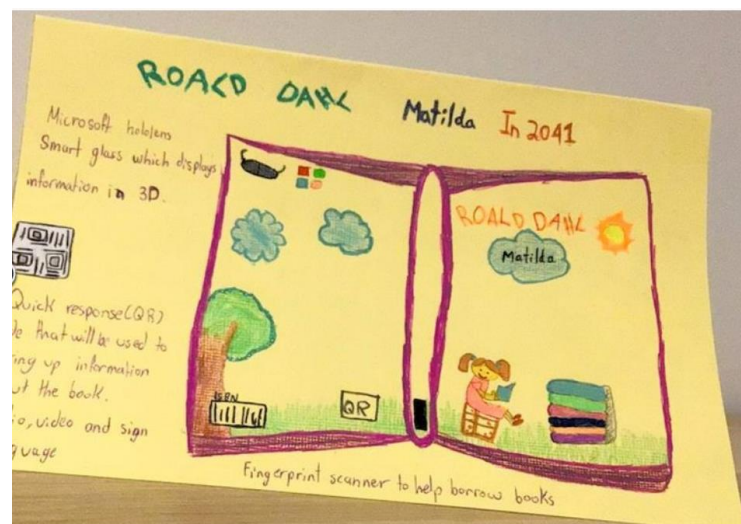 ROALD DAHL Matilda In 2041
Microsoft hololens
Smart glass which displays
information in 3D.
Quick response(QR)
that will be used to
up information
the book.
video and sign
ROALD DAHL
Matilda
ISBN
QR
Fingerprint scanner to help borrow books